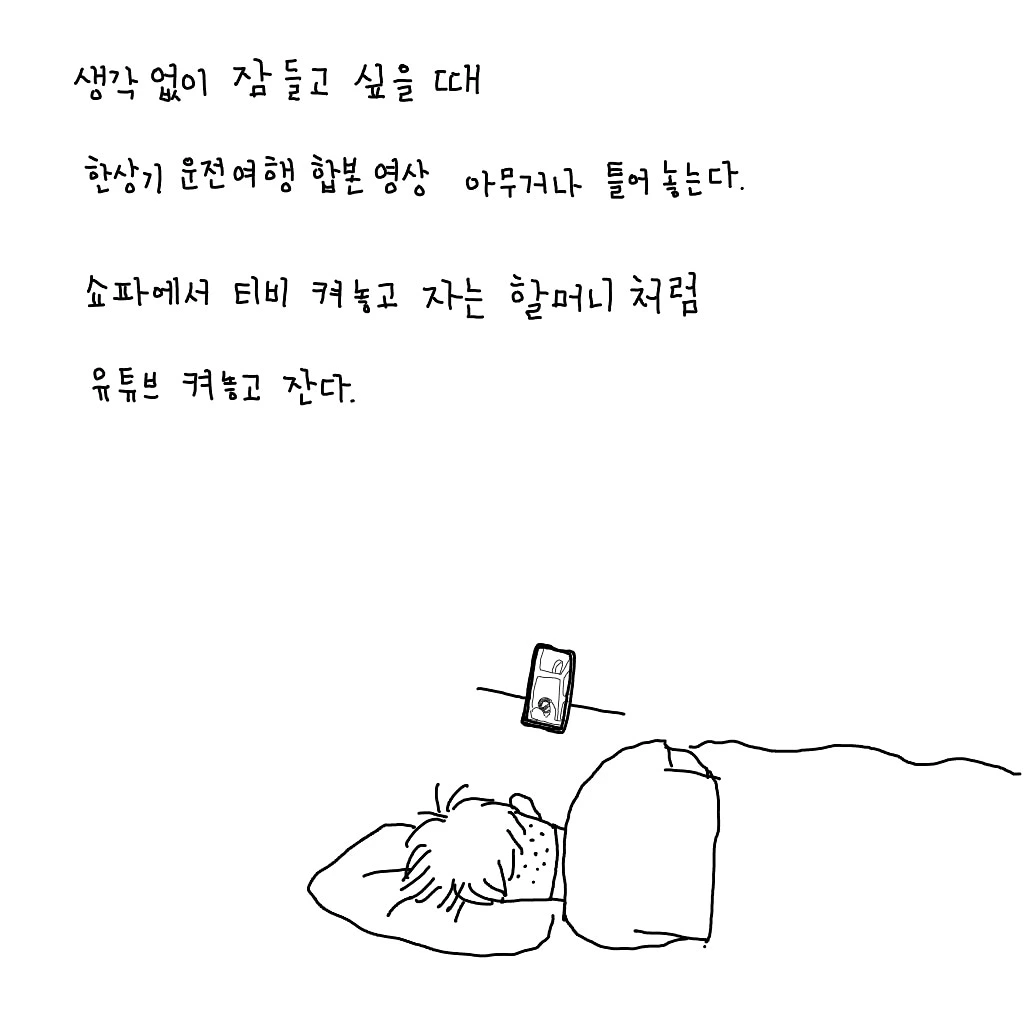 생각 없이 잠들고 싶을 때
한상기 운전여행 합본 영상 아무거나 틀어놓는다.
쇼파에서 티비 켜놓고 자는 할머니처럼
유튜브 켜놓고 잔다.